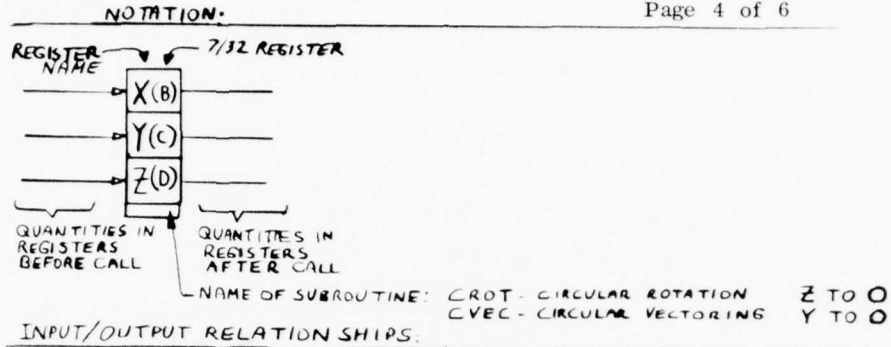 NOTATION.
Page 4 of 6
REGISTER NAME
7/32 REGISTER
X(B)
Y(C)
Z(D)
QUANTITIES IN
REGISTERS
BEFORE CALL
QUANTITIES IN
REGISTERS
AFTER CALL
NAME OF SUBROUTINE: CROT - CIRCULAR ROTATION Z TO O
CVEC - CIRCULAR VECTORING Y TO O
INPUT/OUTPUT RELATIONSHIPS: